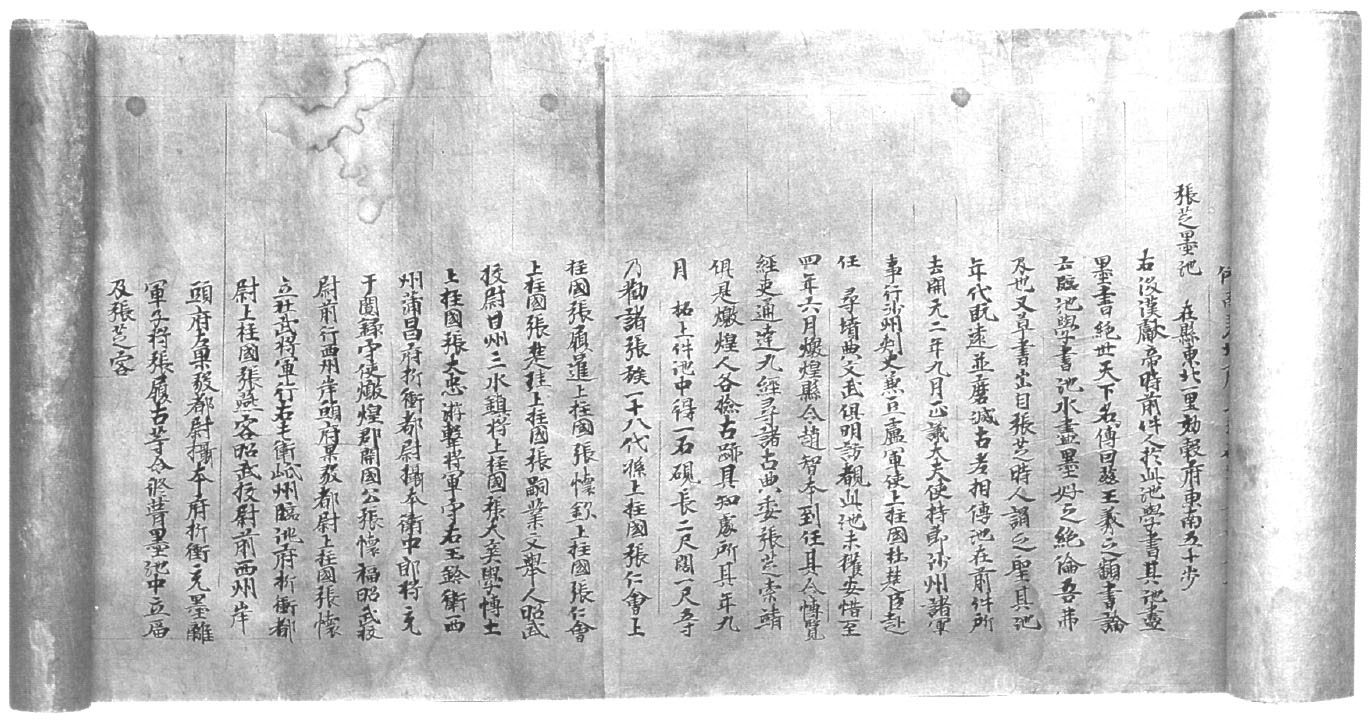 張芝墨池 在縣東北一里効穀府東南五十步
右後漢獻帝時前件人於此池學書其池盡
墨書絕世天下名傳因茲王羲之顏書論
云臨池學書池水盡墨好之絕倫吾弗
及也又草書出自張芝時人謂之聖其池
年代既遠並磨滅古老相傳池在前件所
去開元二年九月正議大夫使持節沙州諸軍
事行沙州刺史兼豆盧軍使上柱國杜楚臣赴
任 尋墳典文武俱明訪覩此池未獲安惜至
四年六月燉煌縣令趙智本到任其令博覽
經史通達九經尋諸古典委張芝索靖
俱是燉煌人各檢古跡具知處所其年九
月 拓上件池中得一石硯長二尺闊一尺五寸
乃勸諸張族一十八代孫上柱國張仁會上
柱國張履暹上柱國張懷欽上柱國張仁會
上柱國張楚珪上柱國張嗣業文舉人昭武
校尉甘州三水鎮將上柱國張大爽學博士
上柱國張大忠遊擊將軍守右玉鈐衛西
州蒲昌府折衝都尉攝本衛中郎將充
于闐錄守使燉煌郡開國公張懷福昭武校
尉前行西州岸頭府果毅都尉上柱國張懷
立壯武將軍行右屯衛岷州臨洮府折衝都
尉上柱國張燕客昭武校尉前西州岸
頭府果毅都尉攝本府折衝充墨離
軍子將張履古等令修葺墨池中立廟
及張芝容